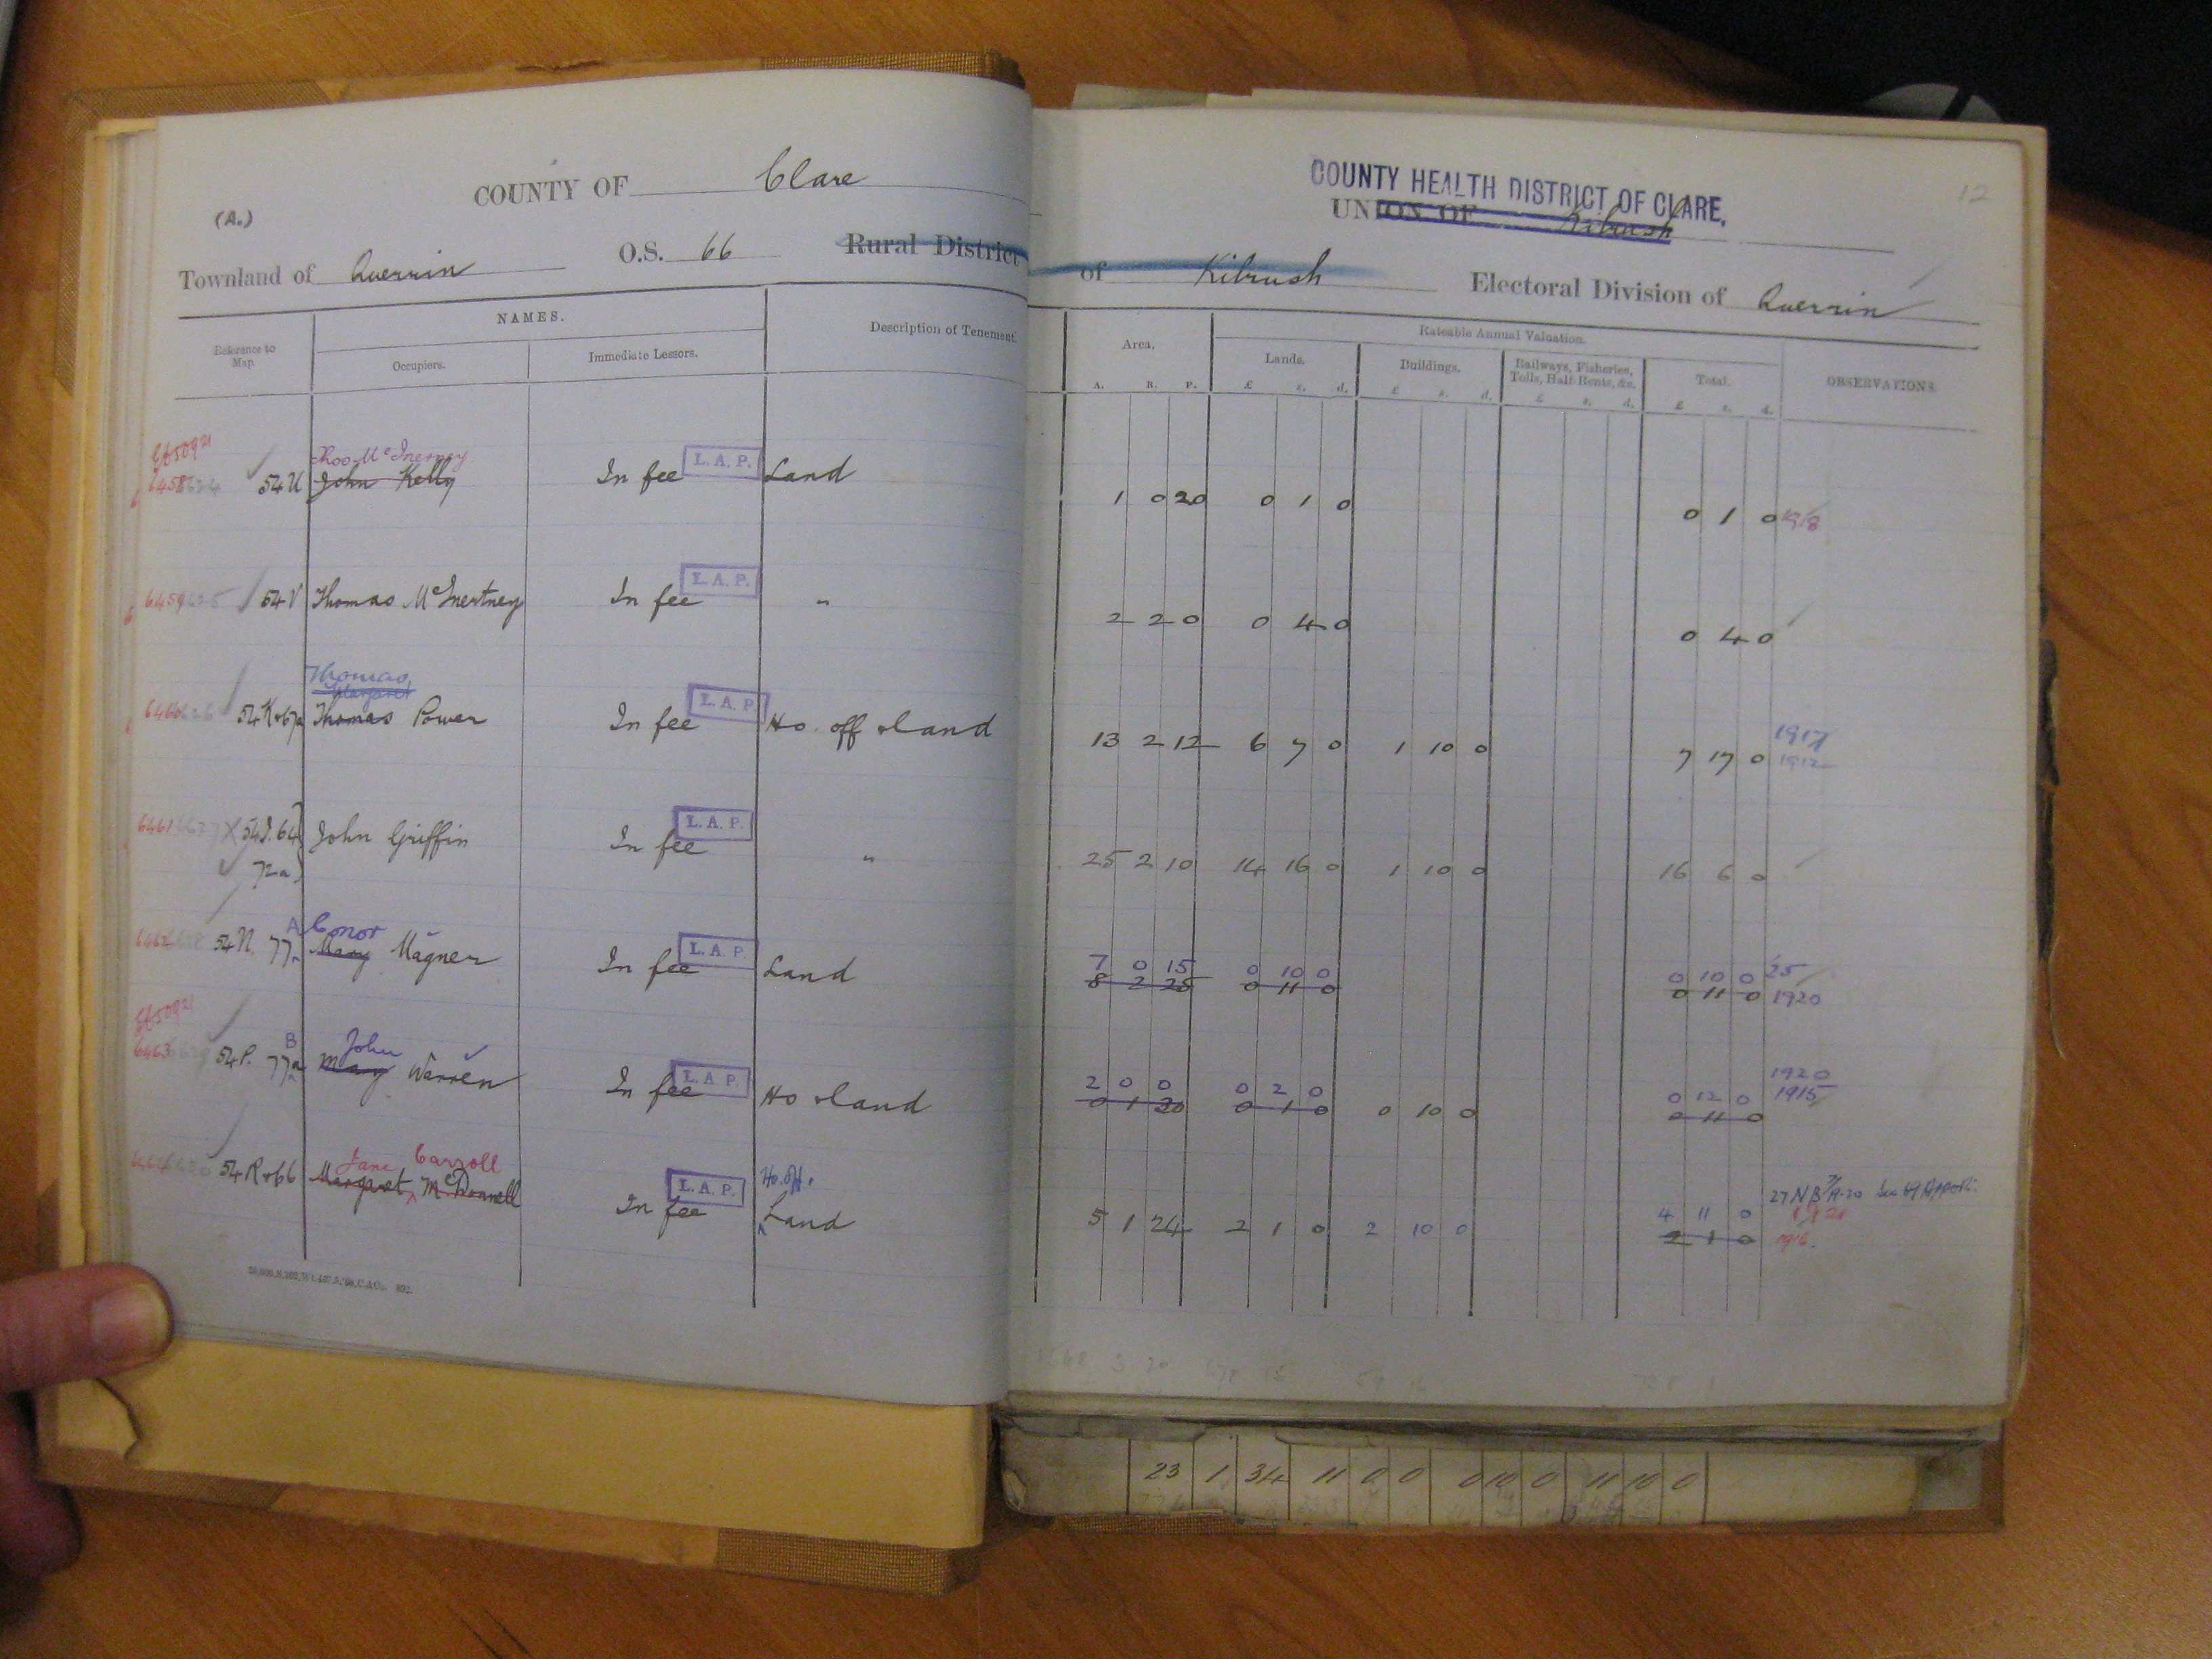 COUNTY OF Clare
COUNTY HEALTH DISTRICT OF CLARE.
UNION OF Kilrush
12
(A.)
Townland of Querrin O.S. 66 Rural District of Kilrush Electoral Division of Querrin
Reference to Map.
NAMES.
Occupiers.
Immediate Lessors.
Description of Tenement.
Area.
A. R. P.
Rateable Annual Valuation.
Lands.
£ s. d.
Buildings.
£ s. d.
Railways, Fisheries, Tolls, Half-Rents, &c.
£ s. d.
Total.
£ s. d.
OBSERVATIONS.
Thos McInerney
54U John Kelly In fee L.A.P. Land 1 0 20 0 1 0 0 1 0 1918
6459 54V Thomas McInertney In fee L.A.P. " 2 2 0 0 4 0 0 4 0
Thomas
Margaret
54K+67a Thomas Power In fee L.A.P. Ho. off + land 13 2 12 6 7 0 1 10 0 7 17 0 1917
1912
6461 54J. 64 John Griffin In fee L.A.P. " 25 2 10 14 16 0 1 10 0 16 6 0
72a
A Conor 7 0 15 0 10 0 0 10 0 25
6462 54N. 77 Mary Magner In fee L.A.P. Land 8 2 25 0 11 0 0 11 0 1920
B John 2 0 0 0 2 0 0 12 0 1920
1915
6463 54P. 77a May Warren In fee L.A.P. Ho + land 0 1 20 0 1 0 0 10 0 0 11 0
Jane Carroll Ho. off. 4 11 0
54R+66 Margaret McDonnell In fee L.A.P. Land 5 1 24 2 1 0 2 10 0 2 1 0 1916.
23 1 34 11 0 0 0 10 0 11 10 0